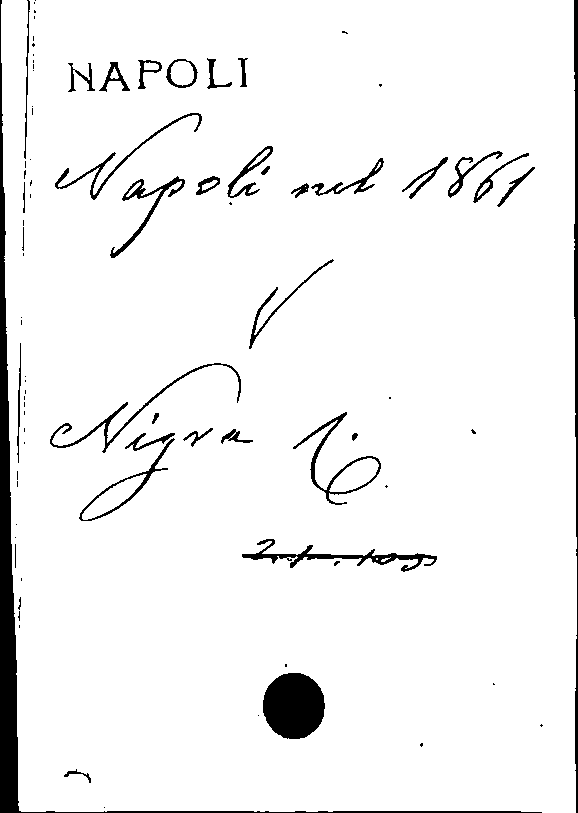 NAPOLI
Napoli nel 1861
V
Nigra C.
2.1.105